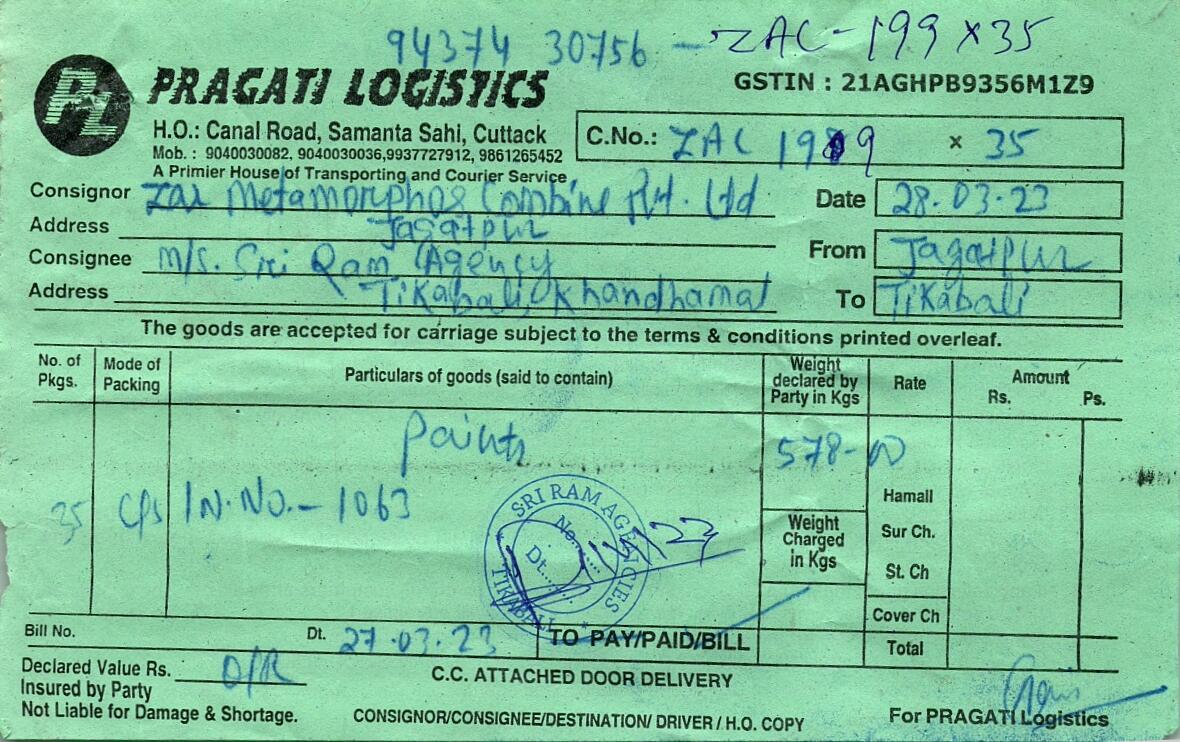 94374 30756 - ZAC-199 x 35
PL
PRAGATI LOGISTICS
GSTIN : 21AGHPB9356M1Z9
H.O.: Canal Road, Samanta Sahi, Cuttack
Mob. : 9040030082, 9040030036,9937727912, 9861265452
A Primier House of Transporting and Courier Service
C.No.: ZAC 199 x 35
Consignor Zar Metamorphos Combine Pvt. Ltd
Date 28-03-23
Address Jagatpur
From Jagatpur
Consignee M/s. Sri Ram Agency
Address Tikabali, Khandhamal
To Tikabali
The goods are accepted for carriage subject to the terms & conditions printed overleaf.
No. of Pkgs. Mode of Packing Particulars of goods (said to contain) Weight declared by Party in Kgs Rate Amount Rs. Ps.
Paints 578-00
35 Cps IN.NO.- 1063
Hamall
Weight Charged in Kgs
Sur Ch.
St. Ch
Cover Ch
Total
SRI RAM AGENCIES
No.......
Dt.......
* TIKABALI *
Bill No. Dt. 27-03-23 TO PAY/PAID/BILL
Declared Value Rs. O/R
Insured by Party
Not Liable for Damage & Shortage.
C.C. ATTACHED DOOR DELIVERY
CONSIGNOR/CONSIGNEE/DESTINATION/ DRIVER / H.O. COPY
For PRAGATI Logistics